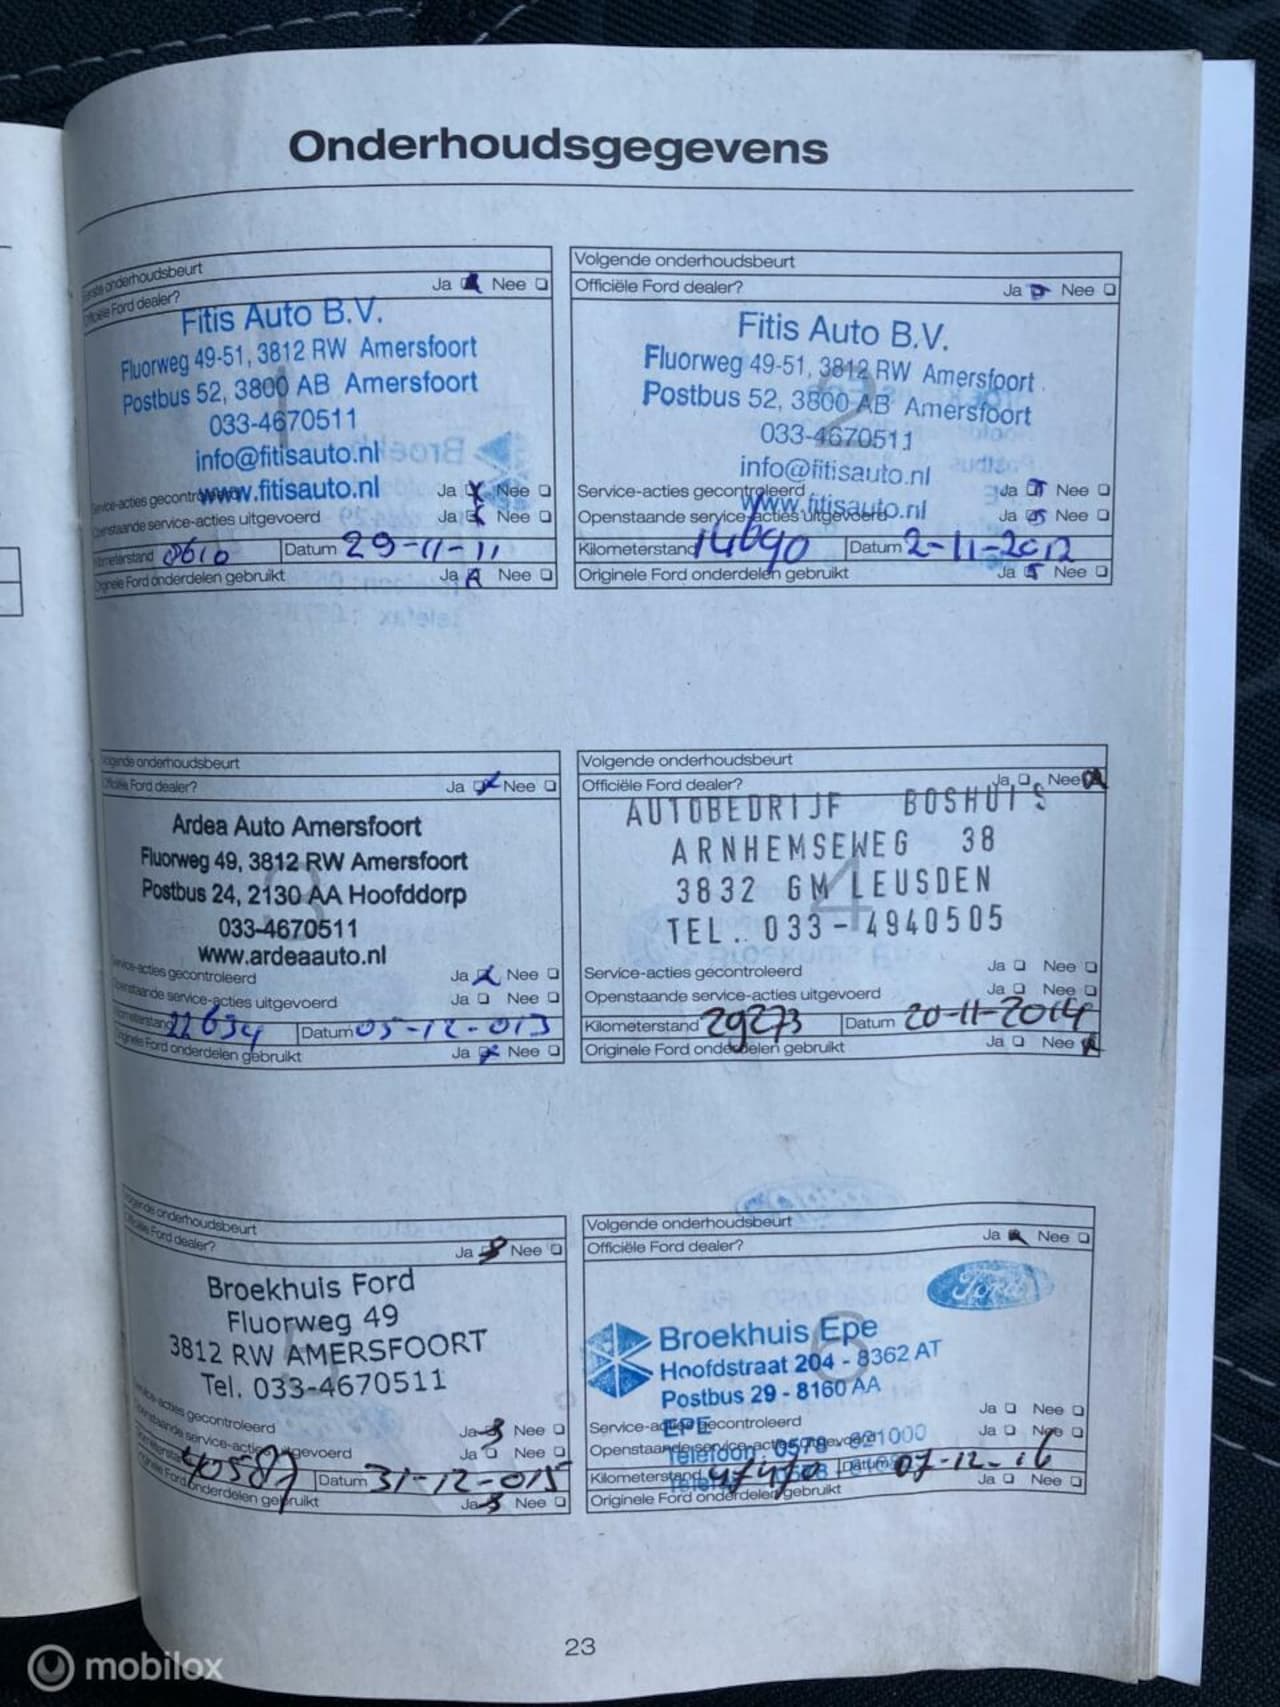 Onderhoudsgegevens
Eerste onderhoudsbeurt
Officiële Ford dealer? Ja Nee
Fitis Auto B.V.
Fluorweg 49-51, 3812 RW Amersfoort
Postbus 52, 3800 AB Amersfoort
033-4670511
info@fitisauto.nl
www.fitisauto.nl
Service-acties gecontroleerd Ja Nee
Openstaande service-acties uitgevoerd Ja Nee
Kilometerstand 8610 Datum 29-11-11
Originele Ford onderdelen gebruikt Ja Nee
Volgende onderhoudsbeurt
Officiële Ford dealer? Ja Nee
Fitis Auto B.V.
Fluorweg 49-51, 3812 RW Amersfoort
Postbus 52, 3800 AB Amersfoort
2
033-4670511
info@fitisauto.nl
www.fitisauto.nl
Service-acties gecontroleerd Ja Nee
Openstaande service-acties uitgevoerd Ja Nee
Kilometerstand 14690 Datum 2-11-2012
Originele Ford onderdelen gebruikt Ja Nee
Volgende onderhoudsbeurt
Officiële Ford dealer? Ja Nee
Ardea Auto Amersfoort
Fluorweg 49, 3812 RW Amersfoort
Postbus 24, 2130 AA Hoofddorp
3
033-4670511
www.ardeaauto.nl
Service-acties gecontroleerd Ja Nee
Openstaande service-acties uitgevoerd Ja Nee
Kilometerstand 22634 Datum 05-12-013
Originele Ford onderdelen gebruikt Ja Nee
Volgende onderhoudsbeurt
Officiële Ford dealer? Ja Nee
AUTOBEDRIJF BOSHUIS
ARNHEMSEWEG 38
3832 GM LEUSDEN
4
TEL.. 033-4940505
Service-acties gecontroleerd Ja Nee
Openstaande service-acties uitgevoerd Ja Nee
Kilometerstand 29273 Datum 20-11-2014
Originele Ford onderdelen gebruikt Ja Nee
Volgende onderhoudsbeurt
Officiële Ford dealer? Ja Nee
Broekhuis Ford
Fluorweg 49
3812 RW AMERSFOORT
Tel. 033-4670511
Service-acties gecontroleerd Ja Nee
Openstaande service-acties uitgevoerd Ja Nee
Kilometerstand 40587 Datum 31-12-015
Originele Ford onderdelen gebruikt Ja Nee
Volgende onderhoudsbeurt
Officiële Ford dealer? Ja Nee
Ford
6
Broekhuis Epe
Hoofdstraat 204 - 8362 AT
Postbus 29 - 8160 AA
EPE
Service-acties gecontroleerd Ja Nee
Telefoon 0578 - 621000
Openstaande service-acties uitgevoerd Ja Nee
Kilometerstand 47470 Datum 07-12-16
Originele Ford onderdelen gebruikt Ja Nee
23
mobilox